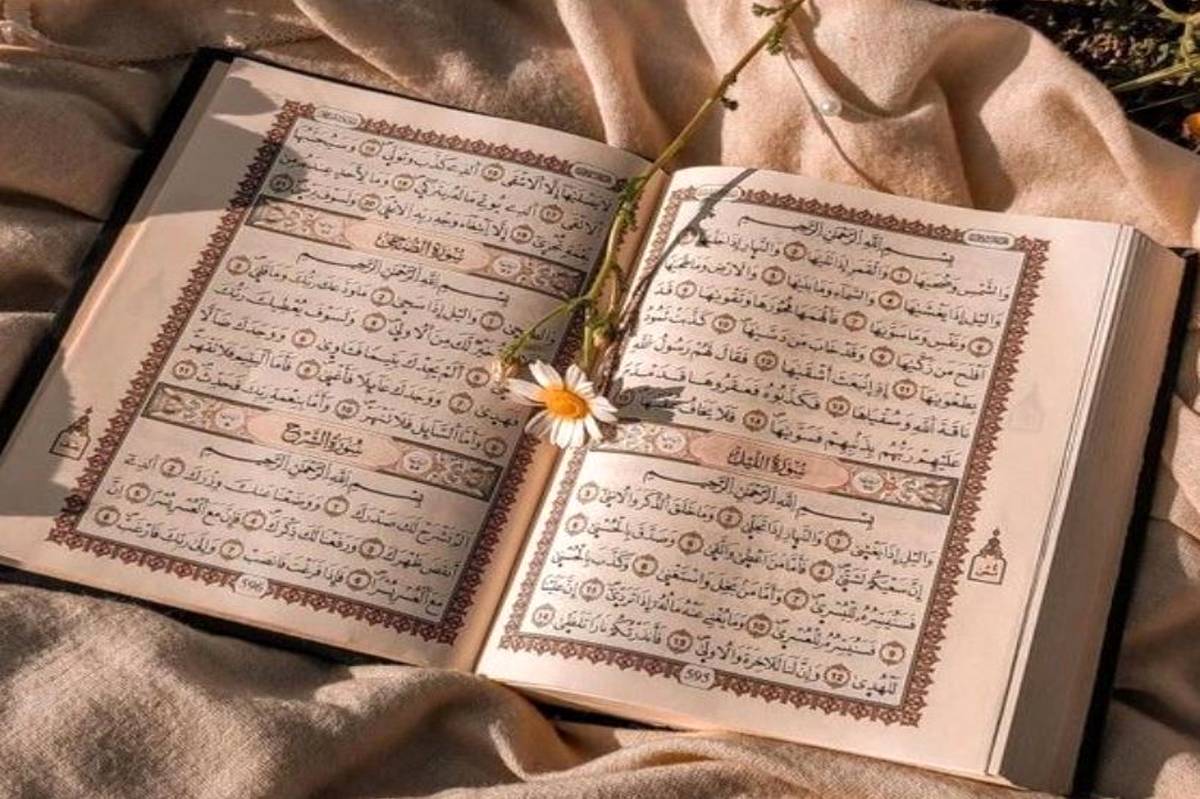 بِسْمِ اللَّهِ الرَّحْمَٰنِ الرَّحِيمِ
وَالشَّمْسِ وَضُحَيٰهَا 1 وَالْقَمَرِ إِذَا تَلَيٰهَا 2 وَالنَّهَارِ إِذَا
وَاليْلِ إِذَا يَغْشَيٰهَا 4 وَالسَّمَآءِ وَمَا بَنَيٰهَا 5 وَالَارْضِ وَمَا طَحَيٰهَا
6 وَنَفْسٖ وَمَا سَوَّيٰهَا 7 فَأَلْهَمَهَا فُجُورَهَا وَتَقْوَيٰهَا 8 قَدَ
اَفْلَحَ مَن زَكَّيٰهَا 9 وَقَدْ خَابَ مَن دَسَّيٰهَا 10 كَذَّبَتْ ثَمُودُ
بِطَغْوَيٰهَا 11 إِذِ اِنۢبَعَثَ أَشْقَيٰهَا 12 فَقَالَ لَهُمْ رَسُولُ اللَّهِ
نَاقَةَ اللَّهِ وَسُقْيَٰهَا 13 فَكَذَّبُوهُ فَعَقَرُوهَا فَدَمْدَمَ
عَلَيْهِمْ رَبُّهُم بِذَنۢبِهِمْ فَسَوَّيٰهَا 14 فَلَا يَخَافُ
سُورَةُ الليْلِ
بِسْمِ اللَّهِ الرَّحْمَٰنِ الرَّحِيمِ
وَاليْلِ إِذَا يَغْشَىٰ 1 وَالنَّهَارِ إِذَا تَجَلَّىٰ 2 وَمَا خَلَقَ الذَّكَرَ وَالُانثَىٰ 3
إِنَّ سَعْيَكُمْ لَشَتَّىٰ 4 فَأَمَّا مَنَ اَعْطَىٰ وَاتَّقَىٰ 5 وَصَدَّقَ بِالْحُسْنَىٰ 6
فَسَنُيَسِّرُهُ لِلْيُسْرَىٰ 7 وَأَمَّا مَنۢ بَخِلَ وَاسْتَغْنَىٰ 8 وَكَذَّبَ بِالْحُسْنَىٰ
9 فَسَنُيَسِّرُهُ لِلْعُسْرَىٰ 10 وَمَا يُغْنِي عَنْهُ مَالُهُ إِذَا تَرَدَّىٰ 11 إِنَّ عَلَيْنَا
لَلْهُدَىٰ 12 وَإِنَّ لَنَا لَلَاخِرَةَ وَالُاولَىٰ 13 فَأَنذَرْتُكُمْ نَارًا تَلَظَّىٰ 14
ثمن
595
لَا يَصْلَيٰهَا إِلَّا الَاشْقَى 15 الَّذِي كَذَّبَ وَتَوَلَّىٰ 16 وَسَيُجَنَّبُهَا
الَاتْقَى 17 الَّذِي يُوتِي مَالَهُ يَتَزَكَّىٰ 18 وَمَا لِأَحَدٍ عِندَهُ مِن
نِّعْمَةٖ تُجْزَىٰ 19 إِلَّا اَبْتِغَآءَ وَجْهِ رَبِّهِ الَاعْلَىٰ 20 وَلَسَوْفَ يَرْضَىٰ 21
سُورَةُ الضُّحَىٰ
بِسْمِ اللَّهِ الرَّحْمَٰنِ الرَّحِيمِ
وَالضُّحَىٰ 1 وَاليْلِ إِذَا سَجَىٰ 2 مَا وَدَّعَكَ رَبُّكَ وَمَا قَلَىٰ 3
لَّكَ مِنَ الُاولَىٰ 4 وَلَسَوْفَ يُعْطِيكَ رَبُّكَ
أَلَمْ يَجِدْكَ يَتِيمًا فَـَٔاوَىٰ 6 وَوَجَدَكَ ضَآلًّا
فَهَدَىٰ 7 وَوَجَدَكَ عَآئِلًا فَأَغْنَىٰ 8 فَأَمَّا الْيَتِيمَ فَلَا تَقْهَرْ
9 وَأَمَّا السَّآئِلَ فَلَا تَنْهَرْ 10 وَأَمَّا بِنِعْمَةِ رَبِّكَ فَحَدِّثْ 11
سُورَةُ الشَّرْحِ
بِسْمِ اللَّهِ الرَّحْمَٰنِ الرَّحِيمِ
أَلَمْ نَشْرَحْ لَكَ صَدْرَكَ 1 وَوَضَعْنَا عَنكَ وِزْرَكَ 2 الَّذِي
أَنقَضَ ظَهْرَكَ 3 وَرَفَعْنَا لَكَ ذِكْرَكَ 4 فَإِنَّ مَعَ الْعُسْرِ يُسْرًا 5 إِنَّ
مَعَ الْعُسْرِ يُسْرًا 6 فَإِذَا فَرَغْتَ فَانصَبْ 7 وَإِلَىٰ رَبِّكَ فَارْغَب 8
596